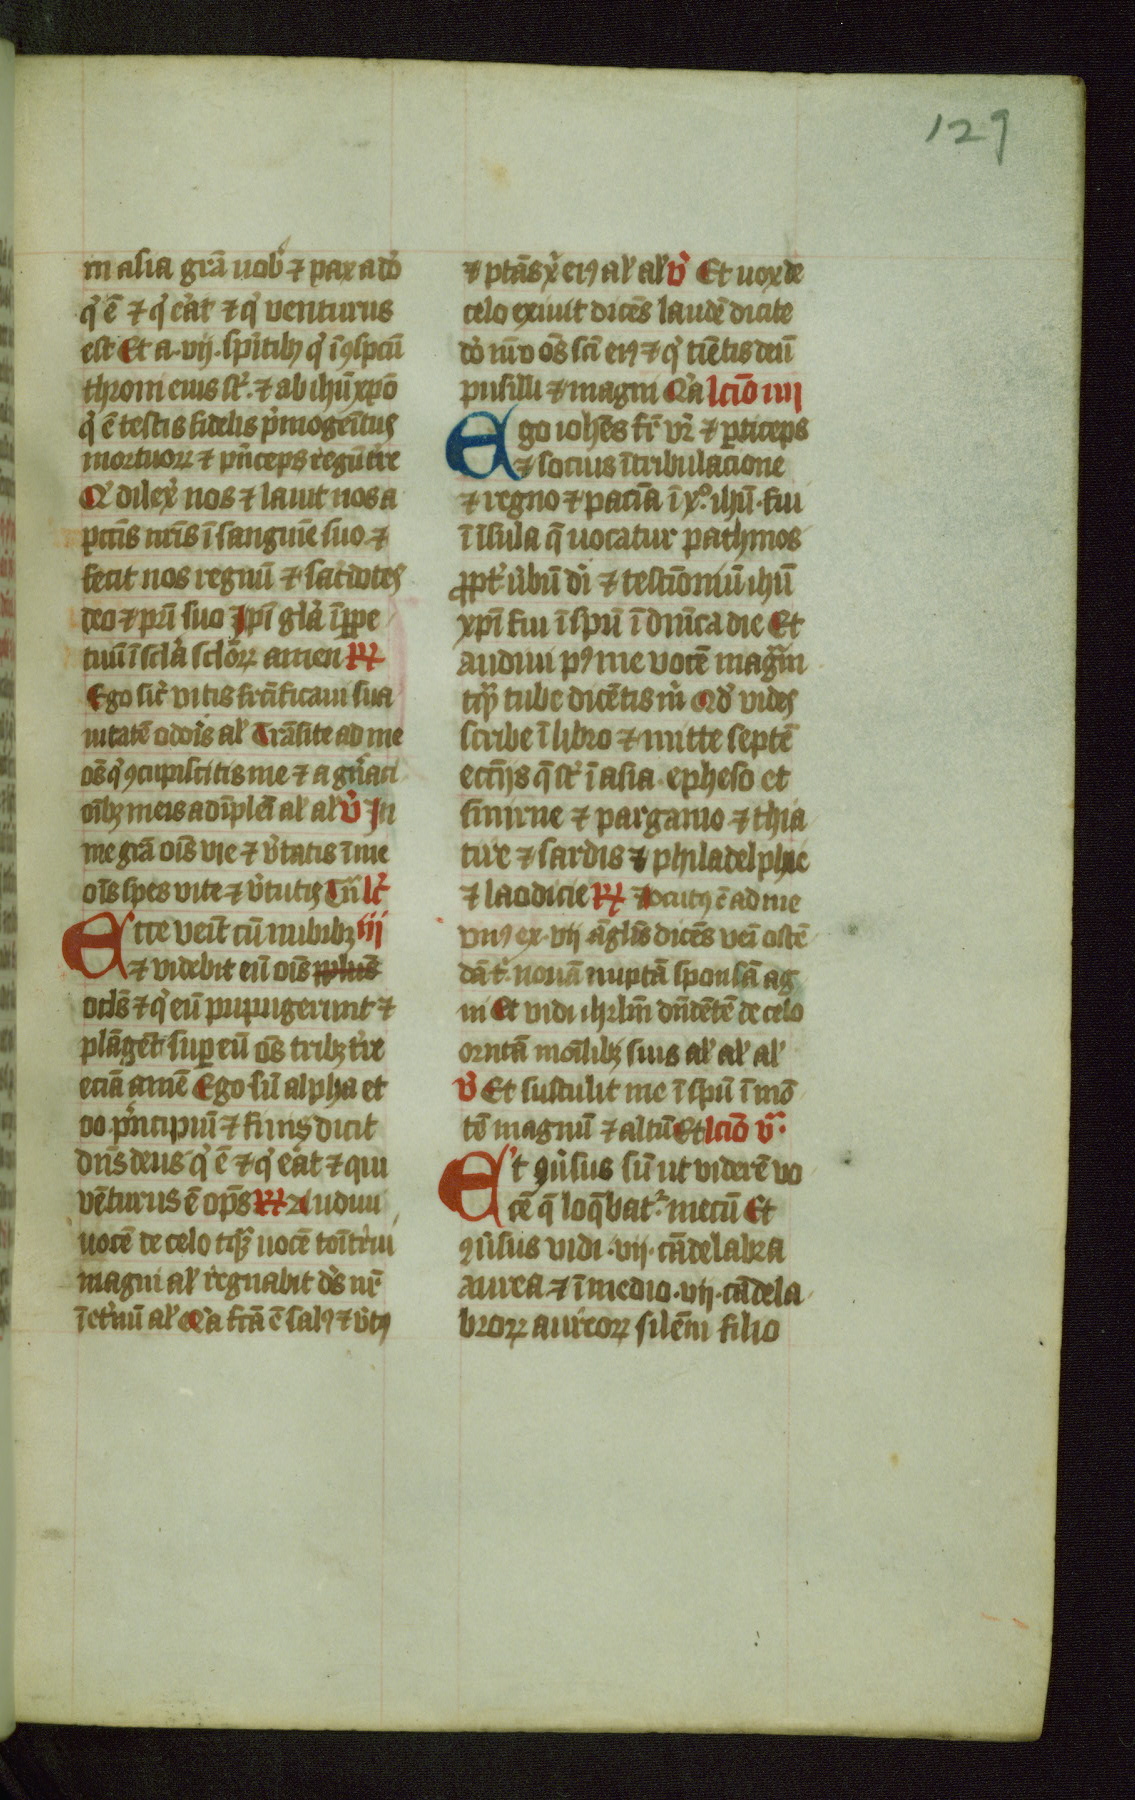 129
in asia grā uob̄ ⁊ pax a dō
q̇ ē ⁊ q̇ er̄at ⁊ q̇ venturus
est Et a · vij · spi̇tibꝫ q̇ ī ꝯspcū
throni eius st̄ · ⁊ ab ihū xpō
q̇ ē testis fidelis ṗmogēitus
mortuoꝝ ⁊ pn̄ceps regū tr̄e
Qi̇ dilex̄ nos ⁊ lauit nos a
pctīs nr̄is ī sanguīe suo ⁊
fecit nos regnū ⁊ sac̄dotes
deo ⁊ pr̄i suo Ipi̅ gl̄a ī ꝑpe
tuū ī scl̄a scl̄oꝝ amen ℞
Ego sic̄ vitis fructificaui sua
uitatē odor̄is al̄ Trāsite ad me
oēs q̇ ꝯcupiscitis me ⁊ a gn̄aci
oībꝫ meis adīplēi al̄ al̄ v̄ In
me grā oīs vie ⁊ v̄tatis ī me
oīs spes vite ⁊ v̄tutis Tn̄ lc̄
Ecce veīt cū nubibꝫ iij
⁊ videbit eū oīs
ocl̄s ⁊ q̇ eū pupugerunt ⁊
plāgēt suꝑ eū oēs tribꝫ tr̄e
eciā amē Ego sū alpha et
oo ṗncipiū ⁊ finis dicit
dn̄s deus q̇ ē ⁊ q̇ er̄at ⁊ qui
vēturus ē op̄s ℞ Audiui
uocē de celo tꝗ̄ uocē tonīt̄rui
magni al̄ regnabit ds̄ nr̄
ī et̄nū al̄ Qi̇a fcā ē salꝯ ⁊ v̄tꝯ
⁊ ptās x̄ eiꝯ al̄ al̄ v̄ Et uox de
celo exiuit dicēs laudē dicite
dō nr̄o oēs scī eiꝯ ⁊ q̇ tiētis deū
pusilli ⁊ magni Qi̇a lcīo iiij
Ego iohēs fr̄ vr̄ ⁊ ꝑticeps
⁊ socius ī tribulacione
⁊ regno ⁊ paciā ī xº ihū · fui
ī īsula q̄ uocatur pathmos
ꝓpt̄ v̄bū di̇ ⁊ testīoniū ihū
xpī fui ī spū ī dnīca die Et
audiui pꝯ me vocē magnā
tꝗ̄ tube dicētis m̄ Qd̄ vides
scribe ī libro ⁊ mitte septē
eccl̄ijs q̄ st̄ ī asia · epheso et
smirne ⁊ pargamo ⁊ thia
tire ⁊ sardis ⁊ philadelphie
⁊ laodicie ℞ Locutꝯ ē ad me
vnꝯ ex · vij āgl̄is dicēs veī ostē
dā t̄ · nouā nuptā sponsā ag
ni Et vidi ihrlm̄ dn̄dētē de celo
orn̄tā monīlibꝫ suis al̄ al̄ al̄
v̄ Et sustulit me ī spū ī mō
tē magnū ⁊ altū Et lcīo v ·
Et ꝯu̇sus sū ut viderē vo
cē q̄ loq̄bat̄ · mecū Et
ꝯu̇sus vidi · vij · cādelabra
aurea ⁊ ī medio · vij · cādela
broꝝ aureoꝝ silēm filio